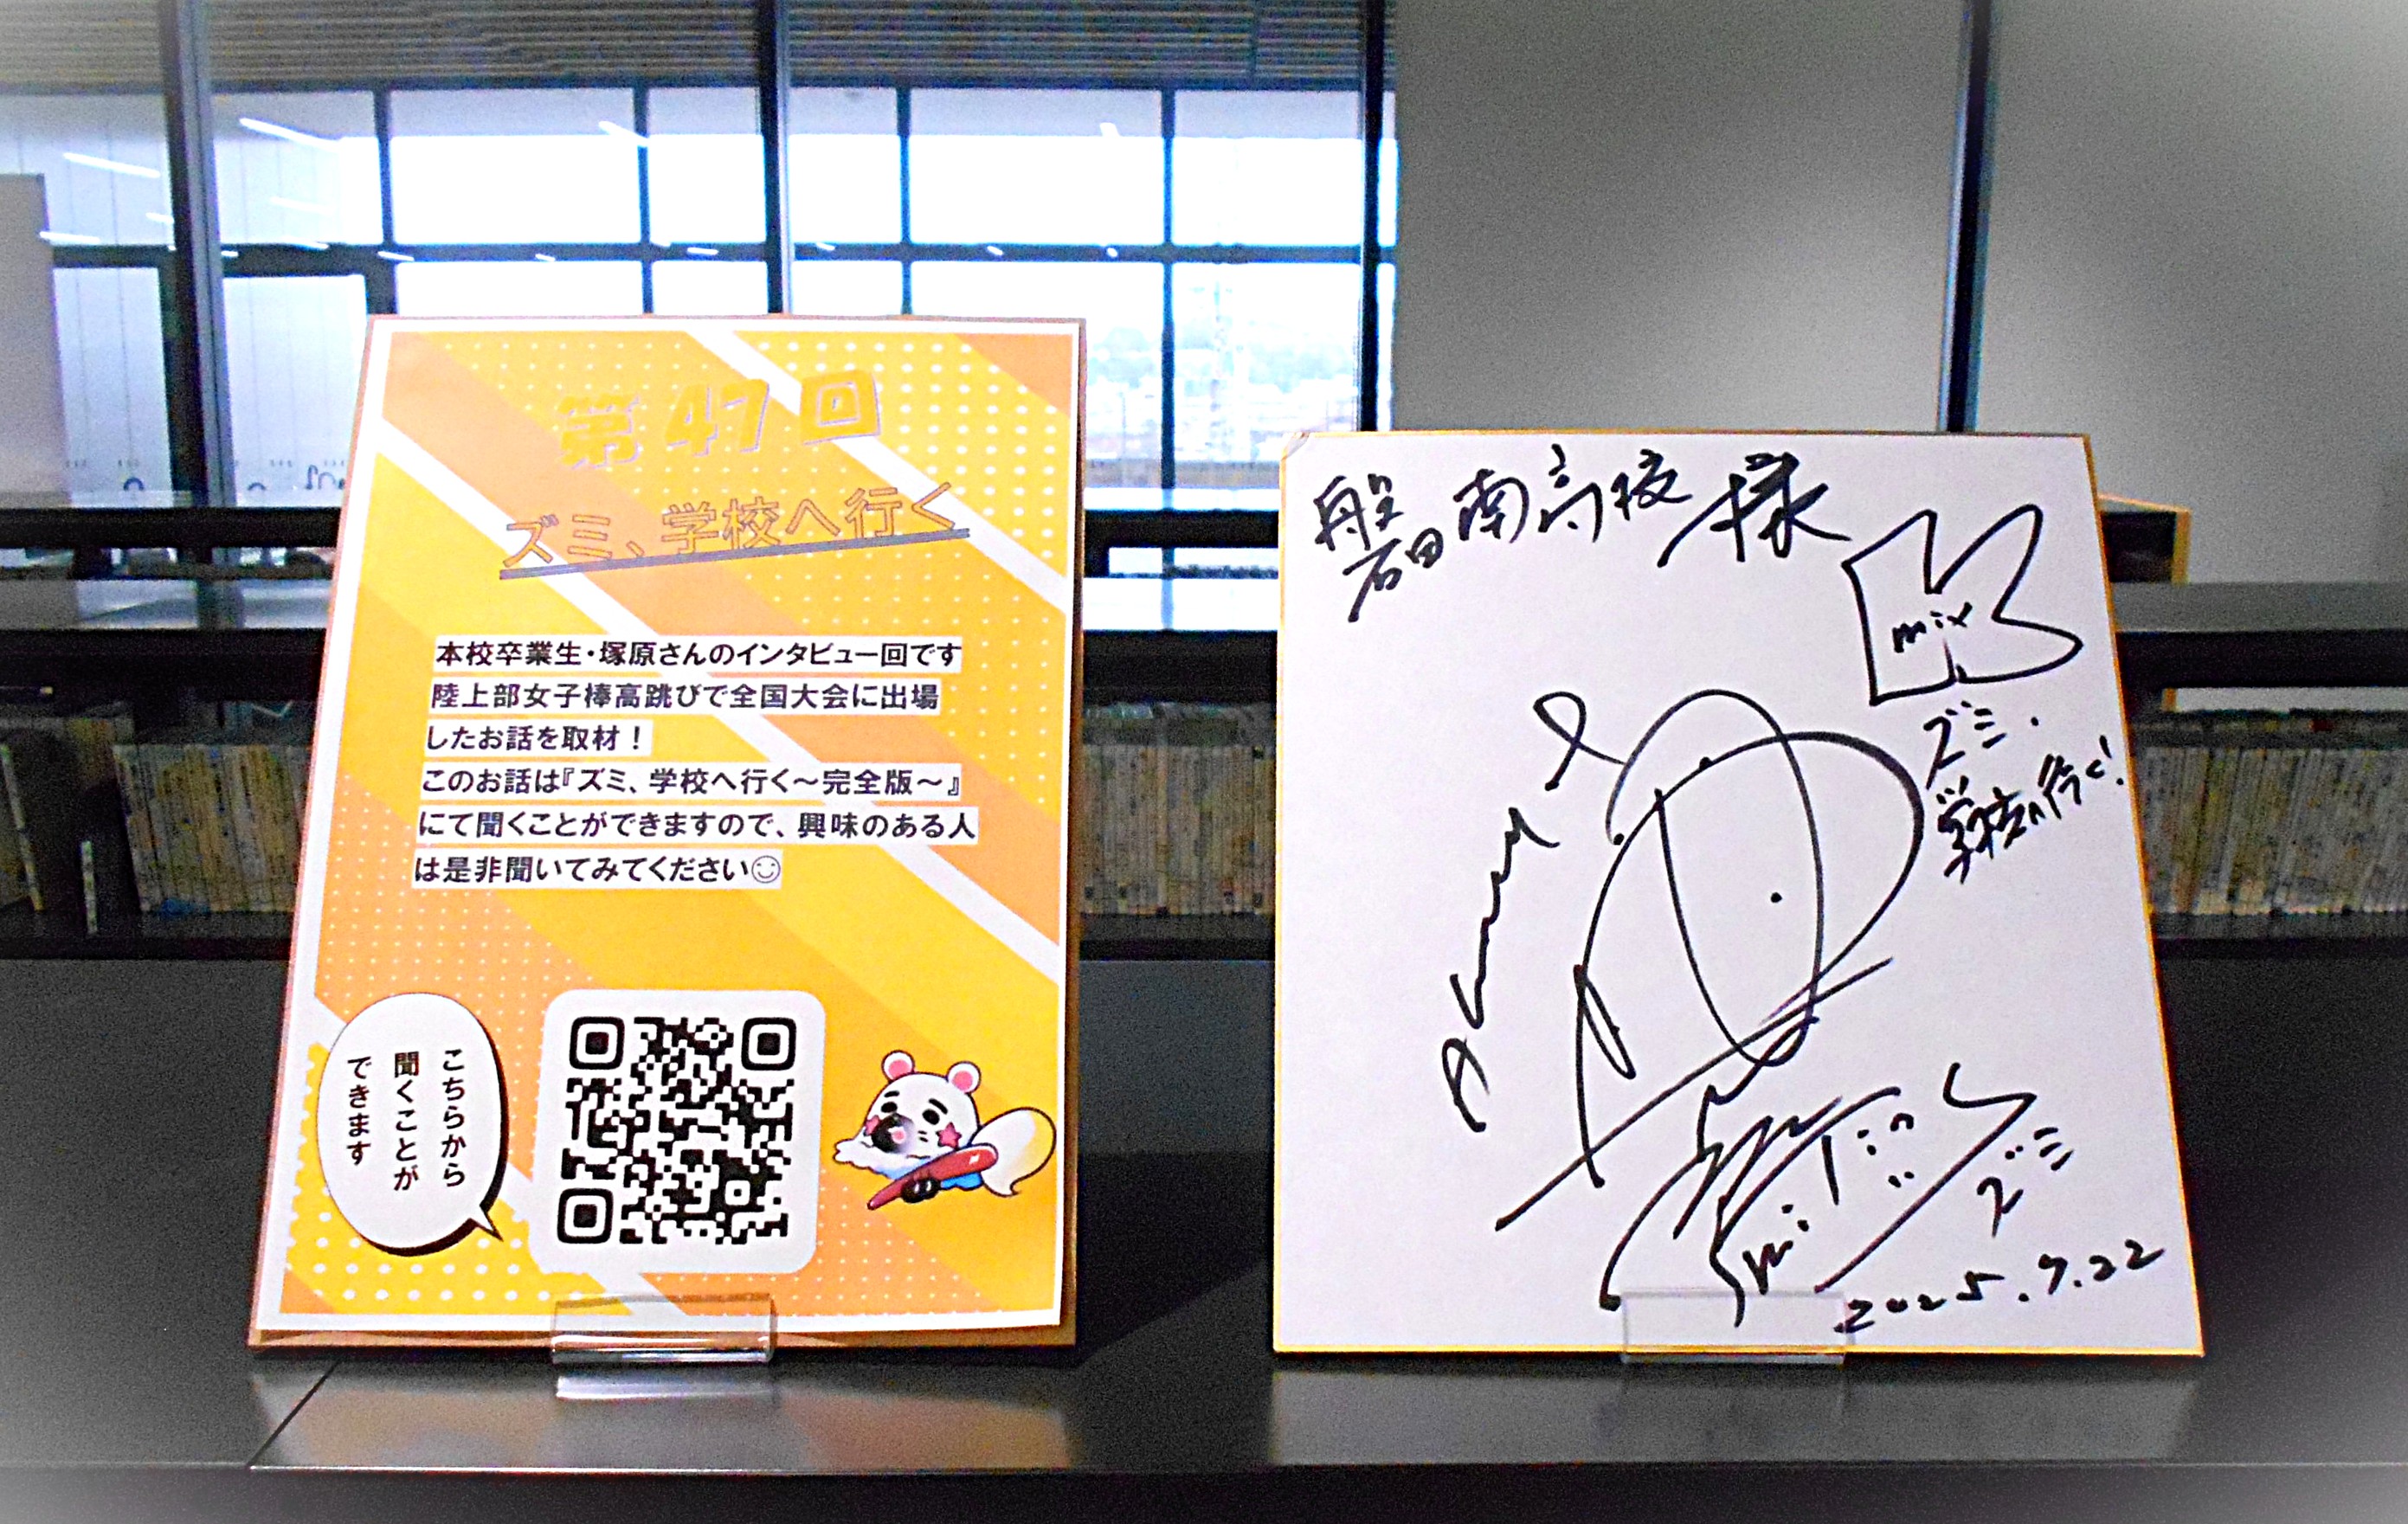 第47回
ズミ、学校へ行く
本校卒業生・塚原さんのインタビュー回です
陸上部女子棒高跳びで全国大会に出場
したお話を取材！
このお話は『ズミ、学校へ行く～完全版～』
にて聞くことができますので、興味のある人
は是非聞いてみてください☺
こちらから
聞くことが
できます
磐田南高校様
mix
ズミ、
学校へ行く!
ズミ
2025.7.22